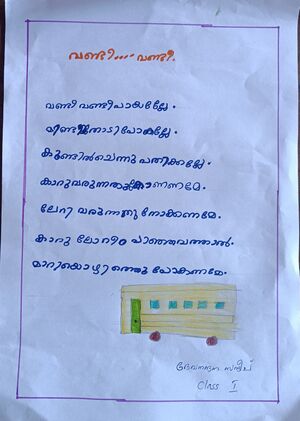 വണ്ടീ.... വണ്ടീ.
വണ്ടീ വണ്ടീപായല്ലേ.
മിണ്ടാതോടിപോകല്ലേ.
കുണ്ടിൽചെന്നു പതിക്കല്ലേ.
കാറുവരുന്നതുകാണണമേ.
ലേറി വരുന്നതു നോക്കണമേ.
കാറു ലോറിം പാഞ്ഞുവന്നാൽ.
മാറിയൊഴിഞ്ഞു പോകണമേ.
ദേവനന്ദന
Class I